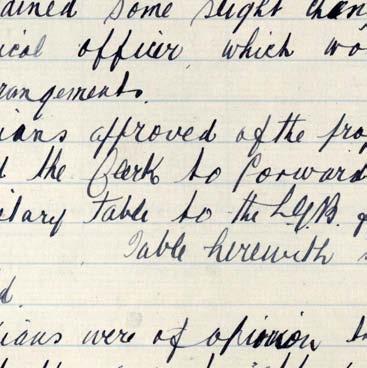 ained some slight chan
ical officer which wo
rangements.
ians approved of the pro
d the Clerk to forward
itary Table to the L.G.B.
Table herewith
d.
ians were of opinion